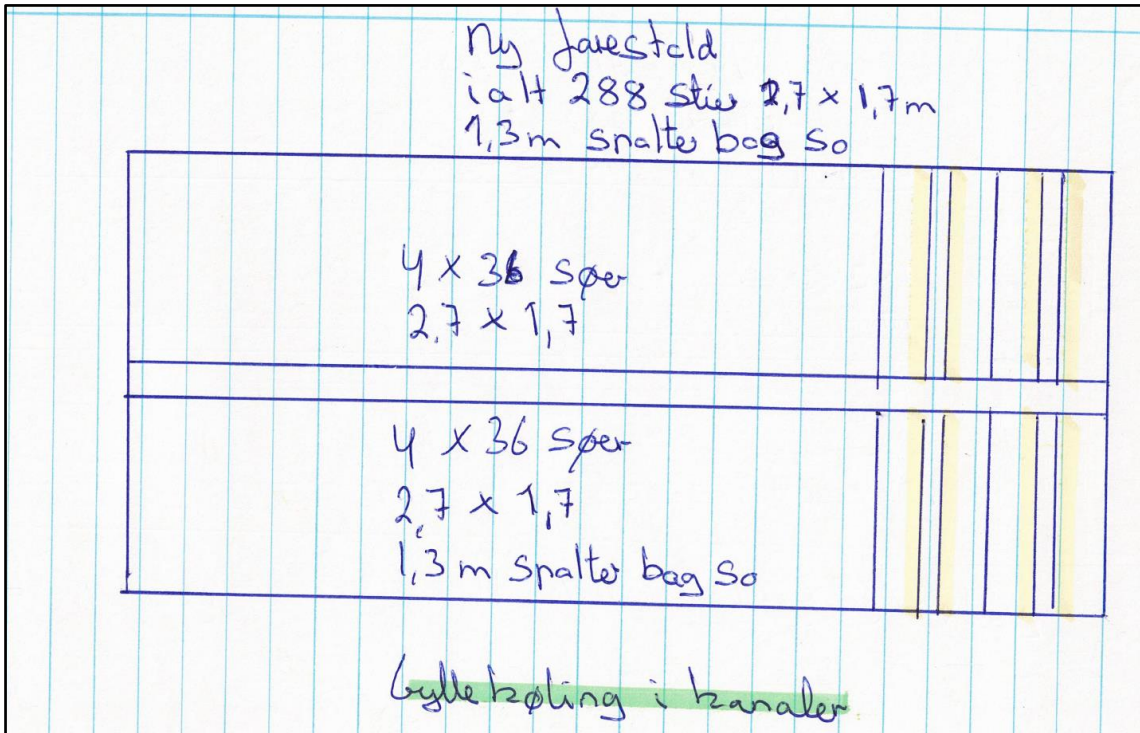 Ny farestald
ialt 288 stier 2,7 x 1,7 m
1,3 m spalter bag so
4 x 36 søer
2,7 x 1,7
4 x 36 søer
2,7 x 1,7
1,3 m spalter bag so
Gyllekøling i kanaler